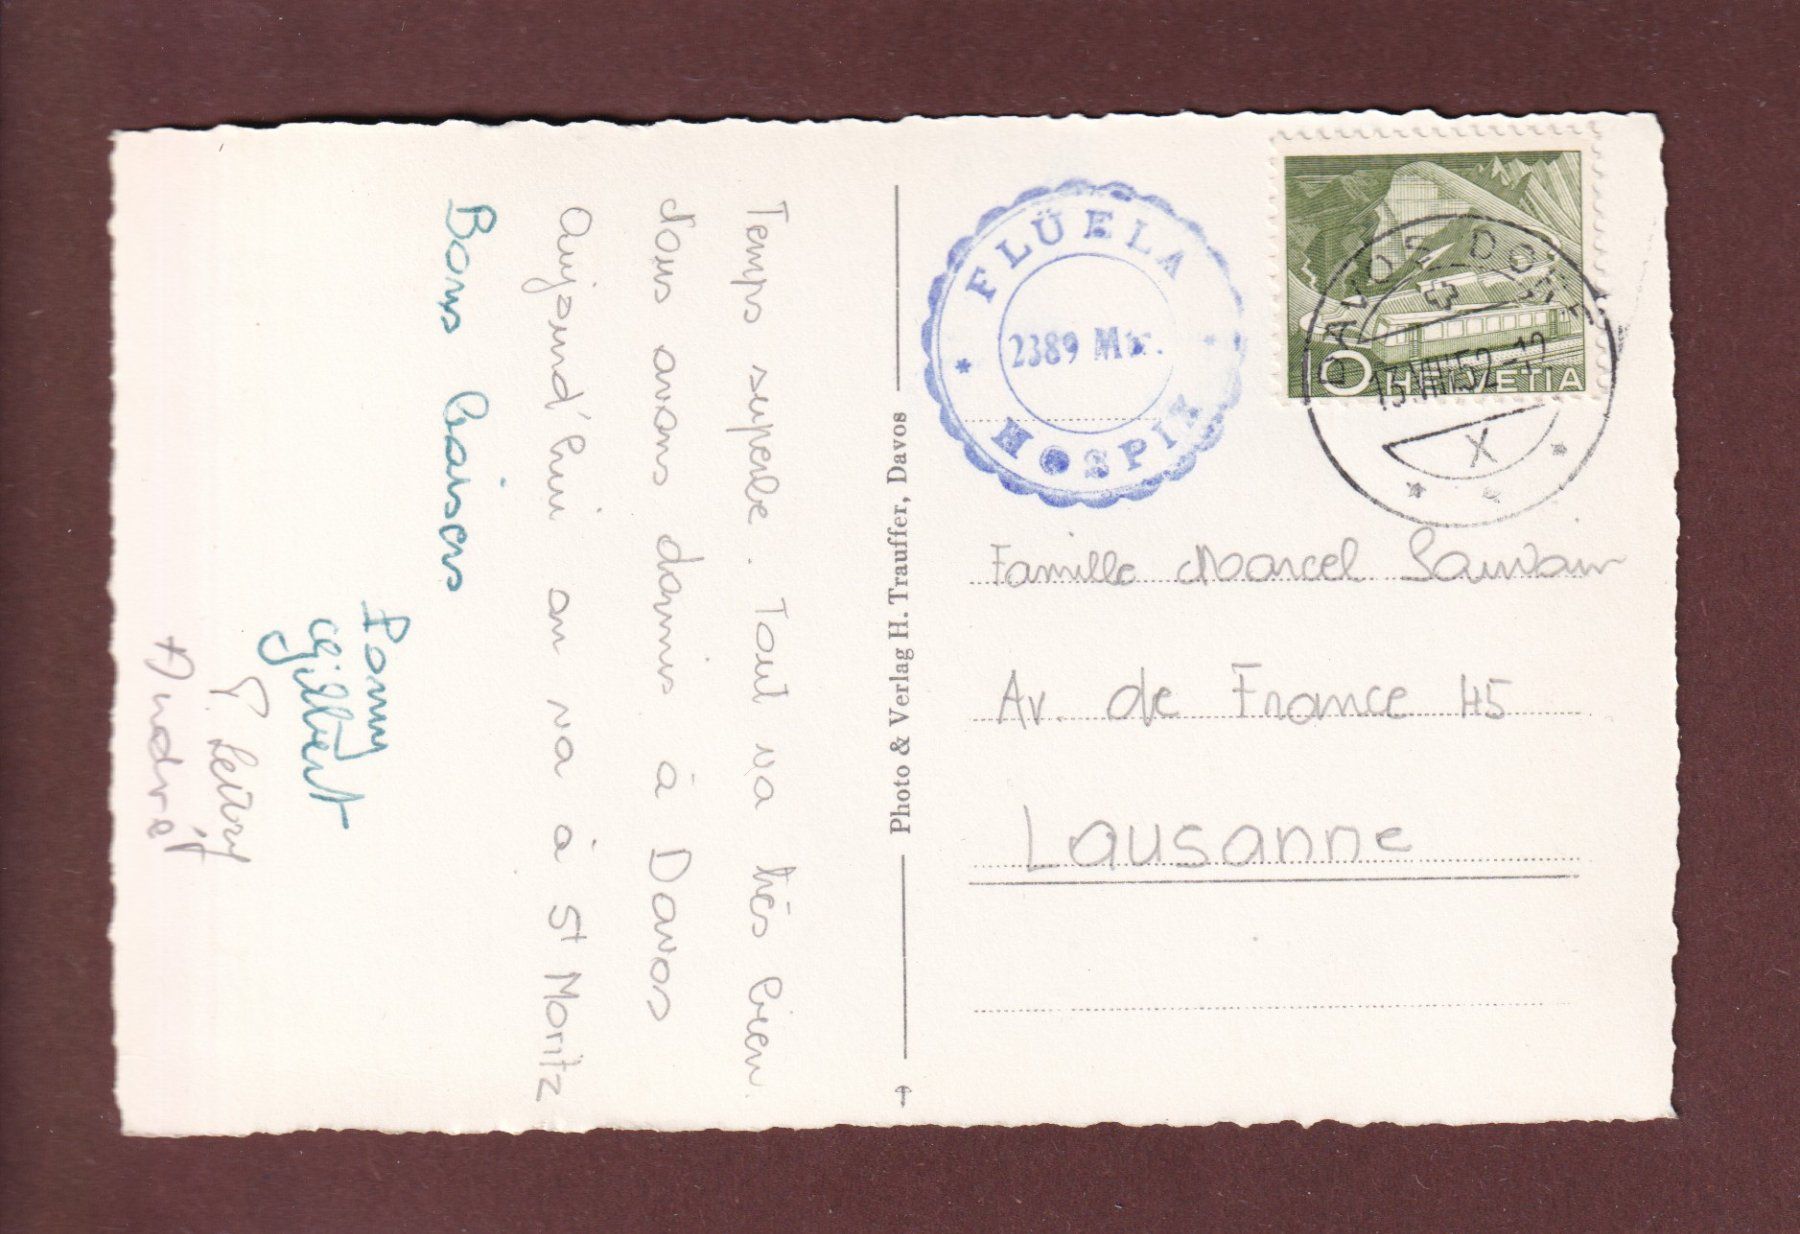 Temps superbe. Tout va très bien.
Nous avons dormi à Davos
Aujourd'hui on va à St Moritz
Bons baisers
Gilbert
André
Photo & Verlag H. Trauffer, Davos
FLÜELA
2389 Mtr.
HOSPIZ
HELVETIA
DAVOS DORF
13.VIII.52-12
X
Famille Marcel Sauvain
Av. de France 45
Lausanne